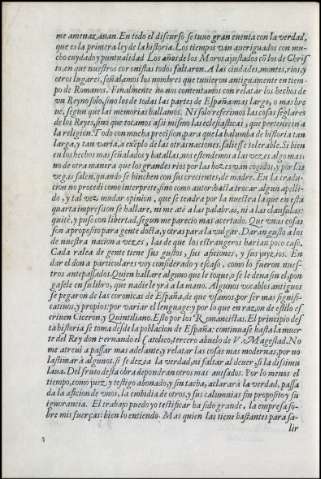 me amenazauan. En todo el discurso se tuuo gran cuenta con la verdad,
que es la primera ley de la historia. Los tiempos van aueriguados con mu-
cho cuydado y puntualidad. Los años de los Moros ajustados cõ los de Chris
to, en que nuestros coronistas todos faltaron. A las ciudades, montes, rios, y
otros lugares, señalamos los nombres que tuuieron antiguamente en tiem
po de Romanos. Finalmente no nos contentamos con relatar los hechos de
vn Reyno solo, sino los de todas las partes de España mas largo, o mas bre
ue, segun que las memorias hallamos. Ni solo referimos las cosas seglares
de los Reyes, sino que tocamos assi mismo las eclesiasticas, que pertenecen a
la religion. Todo con mucha precision para que la balumba de historia tan
larga, y tan varia, a exẽplo de las otras naciones, saliesse tolerable. Si bien
en los hechos mas señalados y batallas, nos estendemos a las vezes algo mas:
no de otra manera que los grandes rios por las hozes van cogidos, y por las
vegas salen quando se hinchen con sus crecientes, de madre. En la tradu-
cion no procedi como interprete, sino como autor hasta trocar algun apelli-
do, y tal vez mudar opinion, que se tendra por la nuestra la que en esta
quarta impression se hallare, ni me atè a las palabras, ni a las clausulas:
quitè, y puse con libertad, segun me parecio mas acertado. Que vnas cosas
son a proposito para gente docta, y otras para la vulgar. Daran gusto a los
de nuestra nacion a vezes, las de que los estrangeros harian poco caso.
Cada ralea de gente tiene sus gustos, sus aficiones, y sus juyzios. En
dar el don a particulares voy considerado y escaso, como lo fueron nues-
tros antepassados. Quien hallare alguno que le toque, o se le deua sin el, pon
gasele en su libro, que nadie le yrà a la mano. Algunos vocablos antiguos
se pegaron de las coronicas de España, de que vsamos por ser mas signifi-
catiuos, y propios: por variar el lenguage: y por lo que en razon de estilo es
criuen Ciceron, y Quintiliano. Esto por los Romancistas. El principio des
ta historia se toma desde la poblacion de España: continuase hasta la muer
te del Rey don Fernando el Catolico, tercero abuelo de V. Magestad. No
me atreui a passar mas adelante, y relatar las cosas mas modernas, por no
lastimar a algunos, si se dezia la verdad, ni faltar al deuer, si la dissimu
laua. Del fruto desta obra depondran otros mas auisados. Por lo menos el
tiempo, como juez, y testigo abonado, y sin tacha, aclararà la verdad, passa
da la aficion de vnos, la embidia de otros, y sus calumnias sin proposito y su
ignorancia. El trabajo puedo yo testificar ha sido grande, la empresa so-
bre mis fuerças: bien lo entiendo. Mas quien las tiene bastantes para sa-
lir